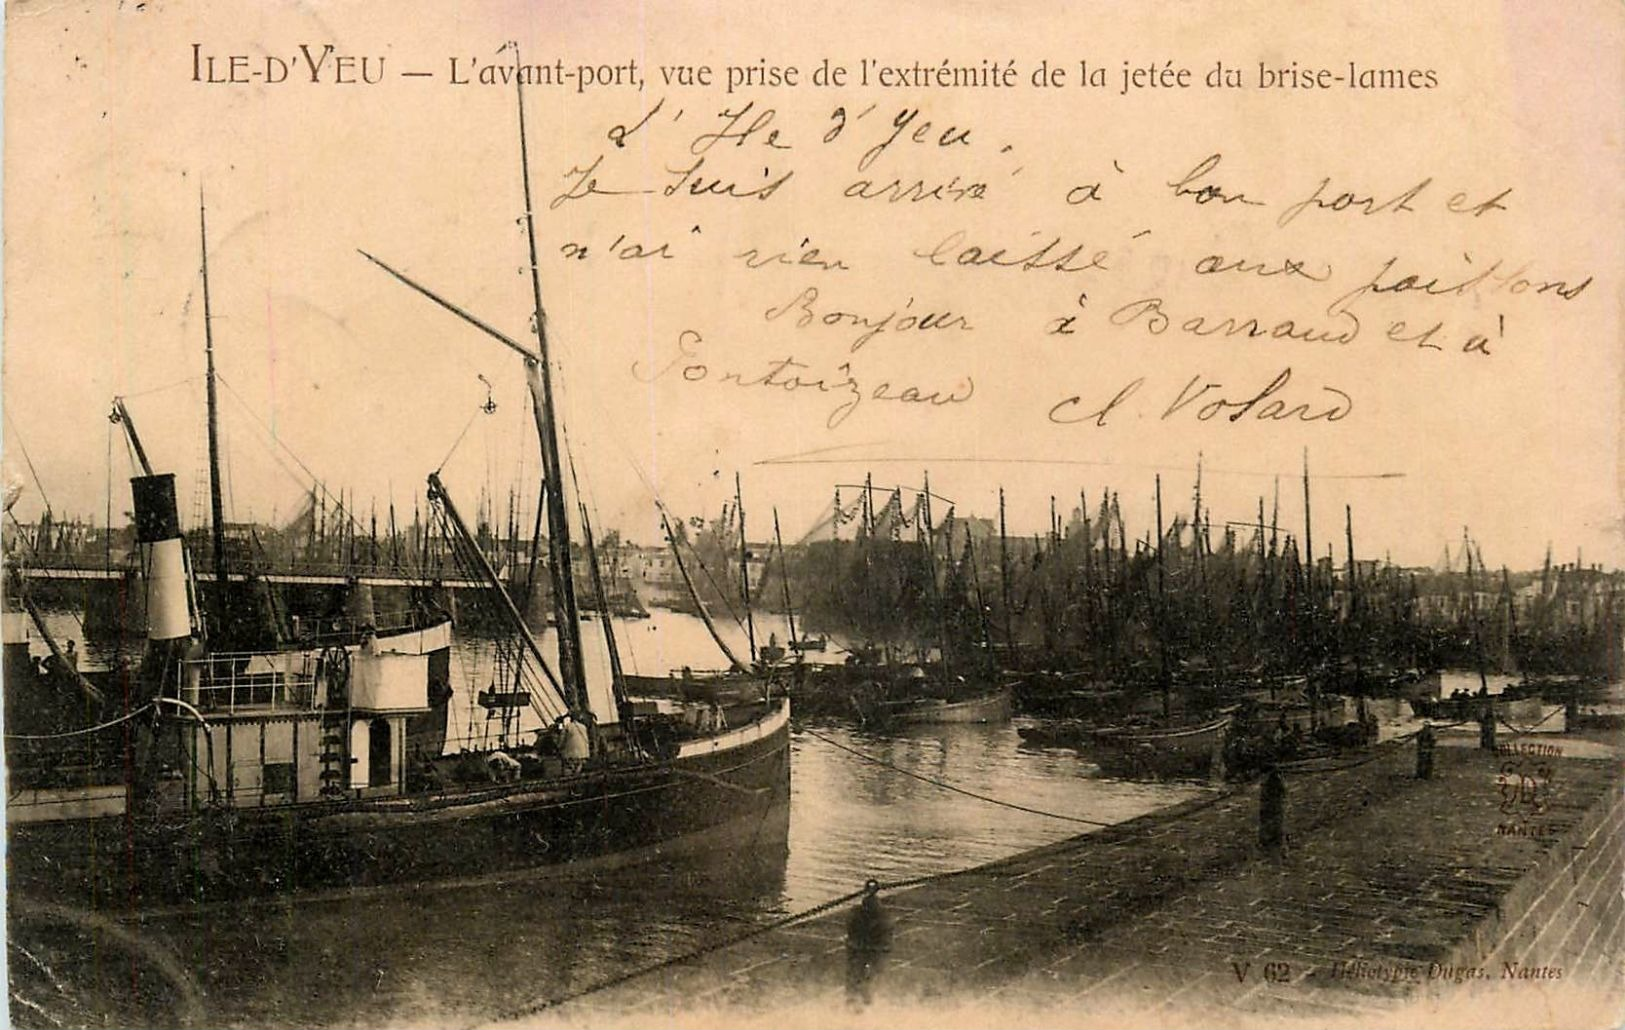 ILE-D'YEU — L'avant-port, vue prise de l'extrémité de la jetée du brise-lames
L'Ile d'Yeu.
Je suis arrivé à bon port et
n'ai rien laissé aux poissons
Bonjour à Barraud et à
Pontoizeau Cl. Volard
COLLECTION
NANTES
V 62 - Héliotypie Dugas, Nantes